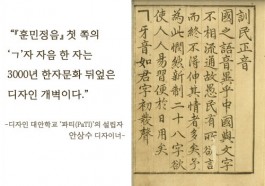 “『훈민정음』 첫 쪽의
‘ㄱ’자 자음 한 자는
3000년 한자문화 뒤엎은
디자인 개벽이다.”
-디자인 대안학교 ‘파티(PaTI)’의 설립자
안상수 디자이너-
訓民正音
國之語音異乎中國與文字
不相流通故愚民有所欲言
而終不得伸其情者多矣予
爲此憫然新制二十八字欲
使人人易習便於日用矣
ㄱ牙音如君字初發聲